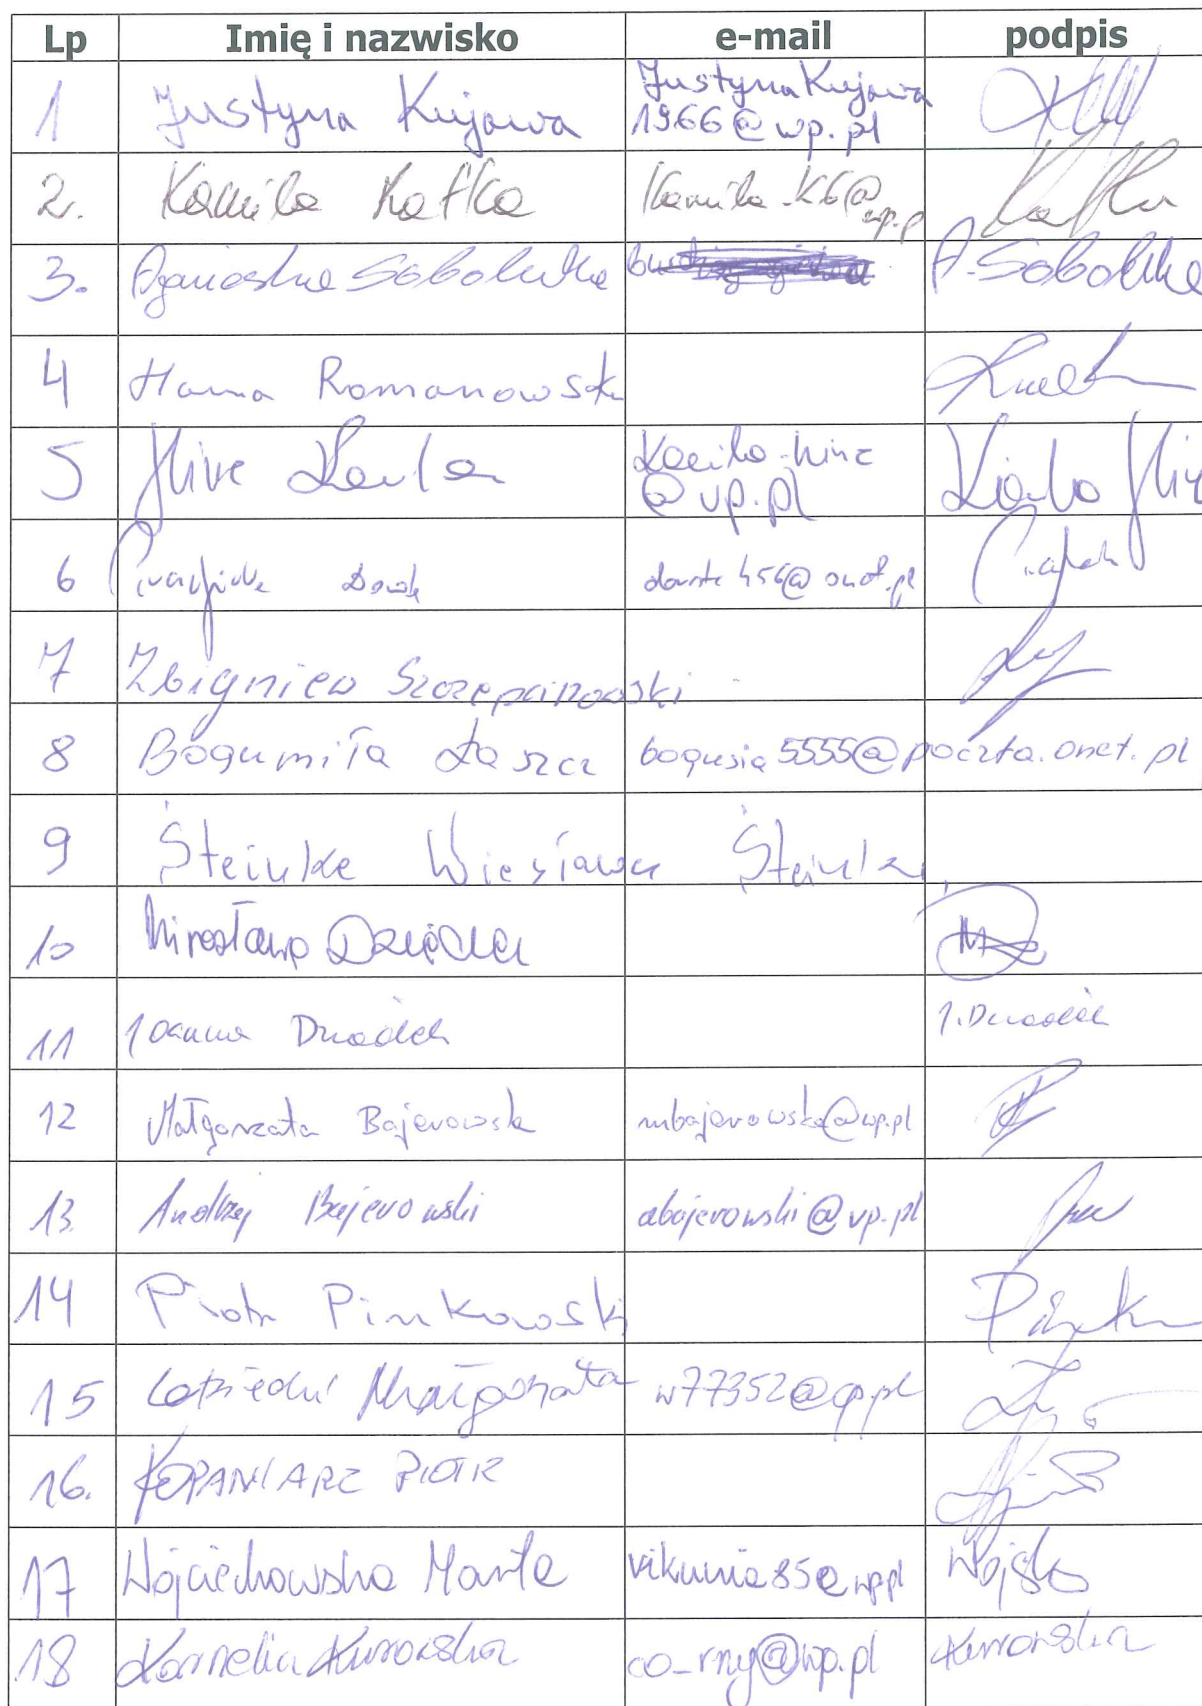 Lp Imię i nazwisko e-mail podpis
1 Justyna Kujawa JustynaKujawa
1966@wp.pl
2. Kamila Kafka Kamila-K6@wp.pl Kafka
3. Agnieszka Sobolewska A.Sobolewska
4 Hanna Romanowska
5 Kamila-hinc
@vp.pl
6
7 Zbigniew Szczepanowski
8 Bogumiła Łaszcz bogusia5555@poczta.onet.pl
9 Steinke Wiesława Steinke
10 Mirosława
11 Joanna
12 Małgorzata Bajerowska mbajerowska@wp.pl
13. Andrzej Bajerowski abajerowski@vp.pl
14 Piotr Pinkowski
15 Małgorzata w77352@op.pl
16. KOPANIARZ PIOTR
17 Wojciechowska Marta vikunia85@wp.pl
18 Kornelia Kurowska co_rny@wp.pl Kurowska